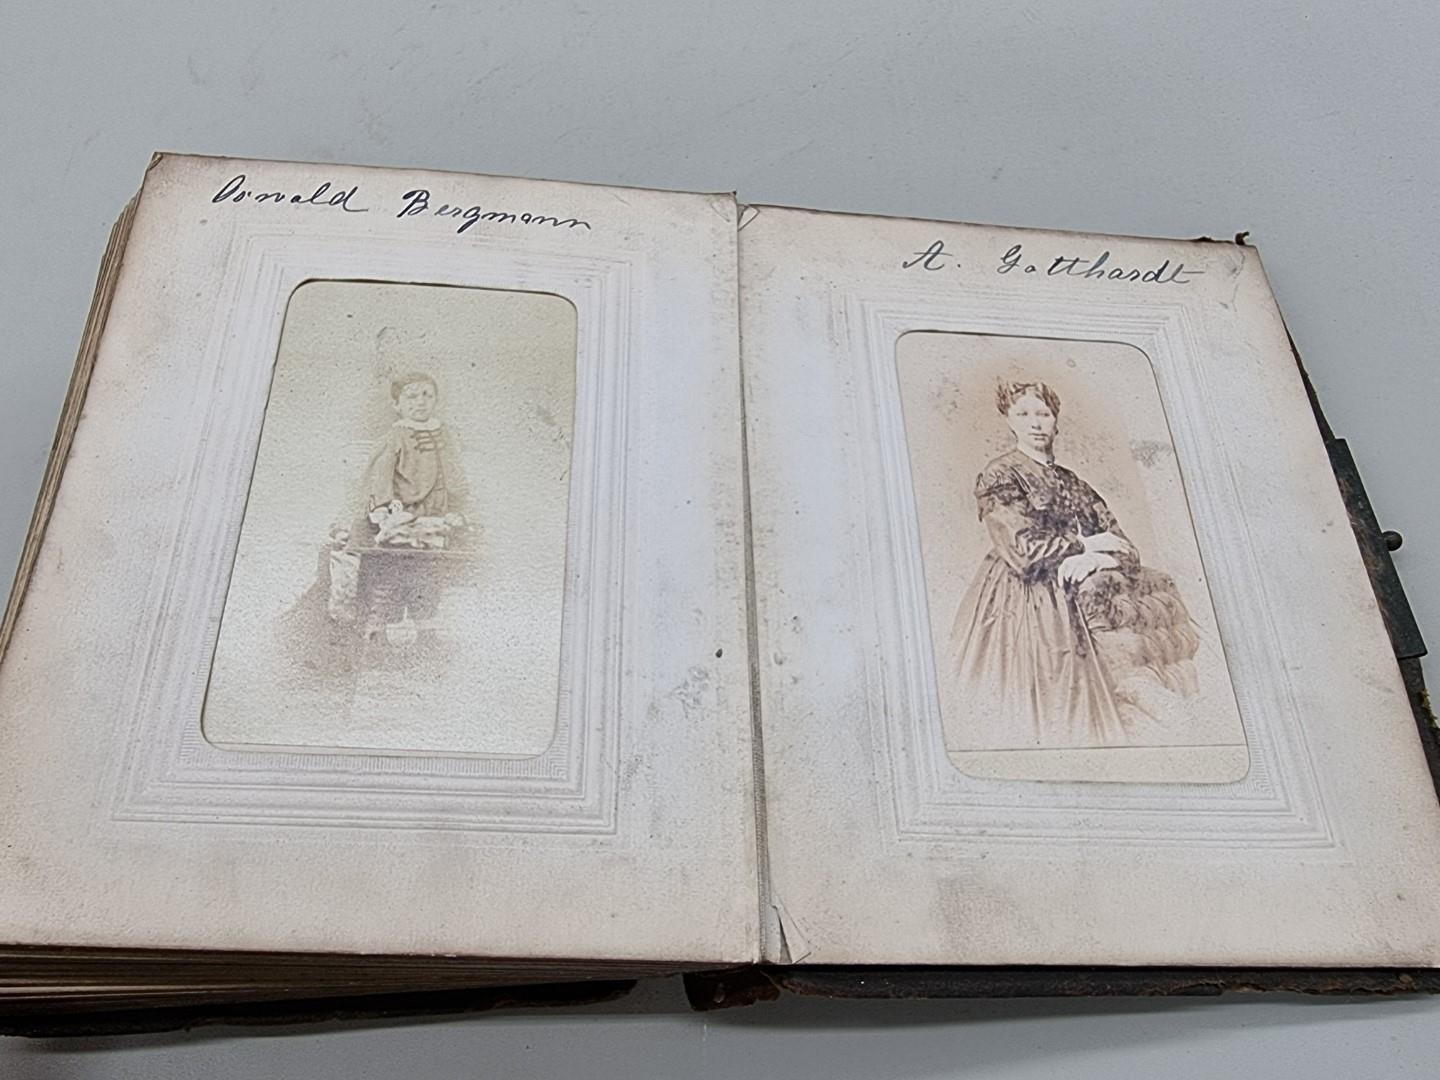 Oswald Bergmann
A. Gotthardt